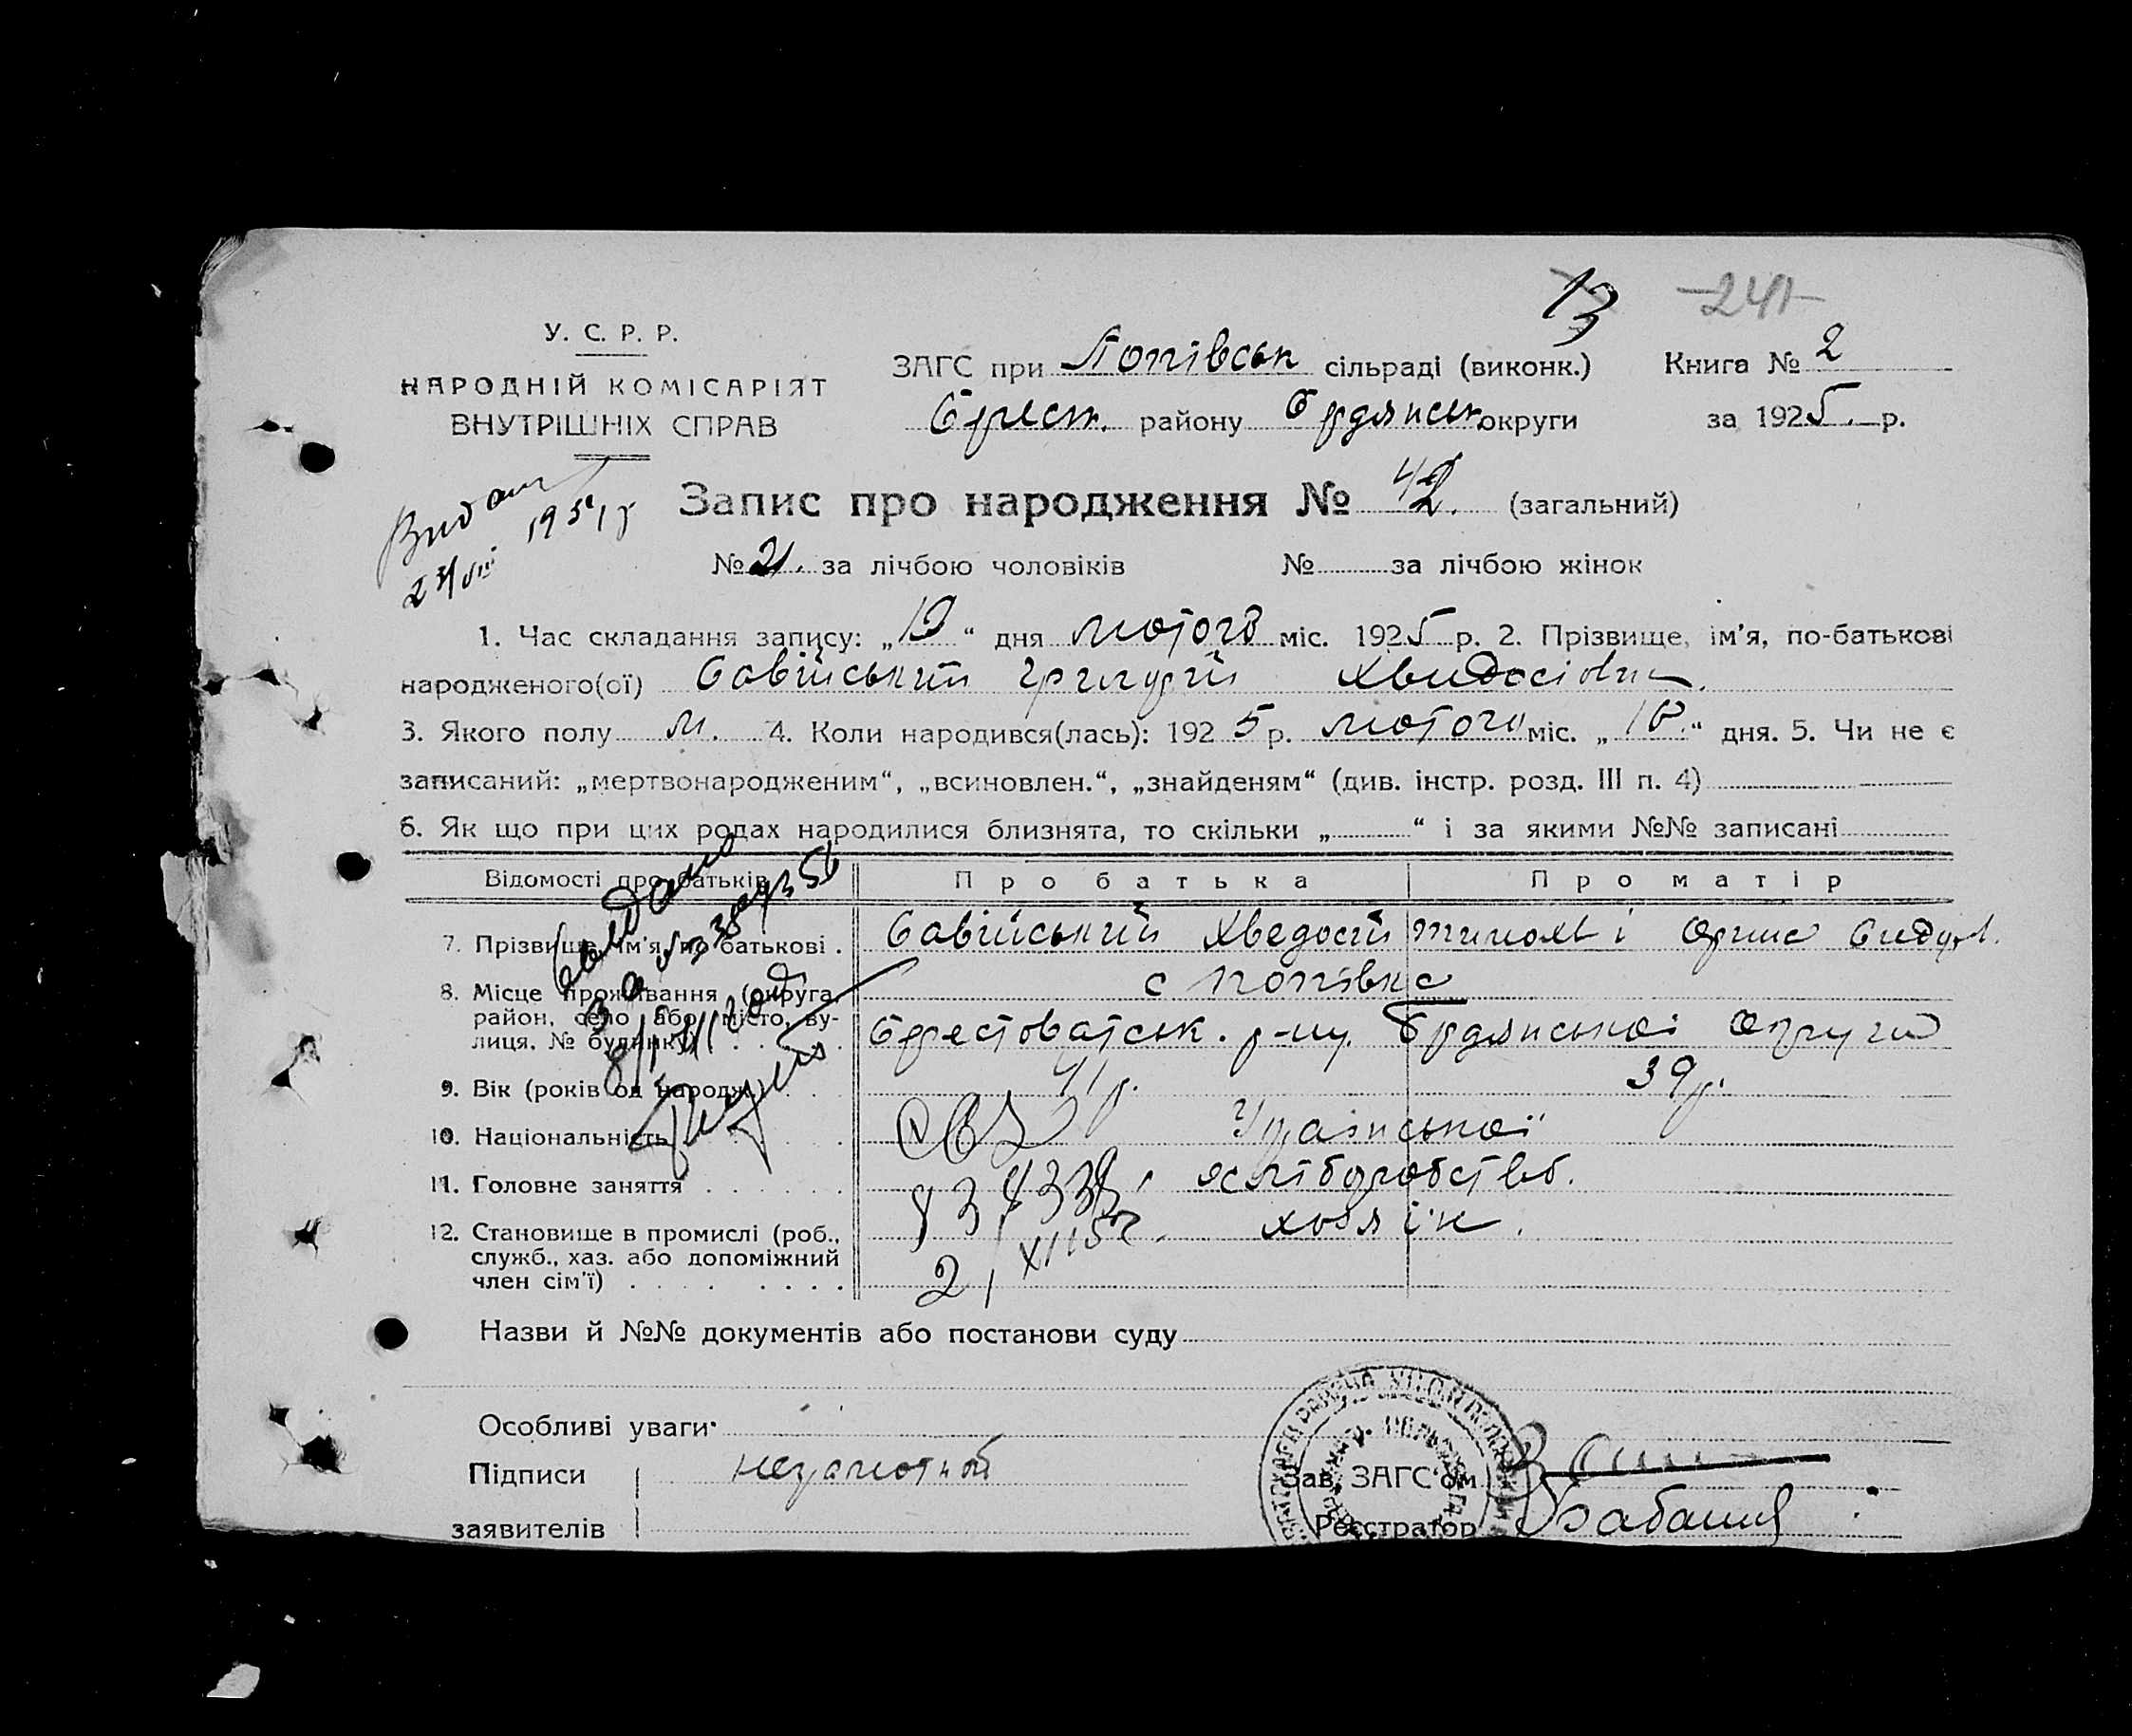 13 -241-
У. С. Р. Р.
НАРОДНІЙ КОМІСАРІЯТ
ВНУТРІШНІХ СПРАВ
ЗАГС при Попівськ сільраді (виконк.) Книга № 2
району Бердянськ округи за 1925 р.
Запис про народження № 42. (загальний)
№ 21. за лічбою чоловіків № за лічбою жінок
1. Час складання запису: „19“ дня лютого міс. 1925 р. 2. Прізвище, ім'я, по-батькові
народженого(ої) Савійський Григорій Хведосіович.
3. Якого полу м. 4. Коли народився(лась): 1925 р. лютого міс. „ “ дня. 5. Чи не є
записаний: „мертвонародженим“, „всиновлен.“, „знайденям“ (див. інстр. розд. III п. 4)
6. Як що при цих родах народилися близнята, то скільки „ “ і за якими №№ записані
Відомості про батьків Про батька Про матір
7. Прізвище, ім'я, по батькові . Савійський Хведосій і
8. Місце проживання (округа, с Попівка
район, село або місто, ву-
лиця, № будинку) р-ну. Бердянської округи
9. Вік (років од народж.) 41 р. 39 р.
10. Національність Української
11. Головне заняття хліборобств.
12. Становище в промислі (роб., хозяїн.
служб., хаз. або допоміжний
член сім'ї)
Назви й №№ документів або постанови суду
Особливі уваги
Підписи неграмотній Зав. ЗАГС'ом
заявителів Реєстратор